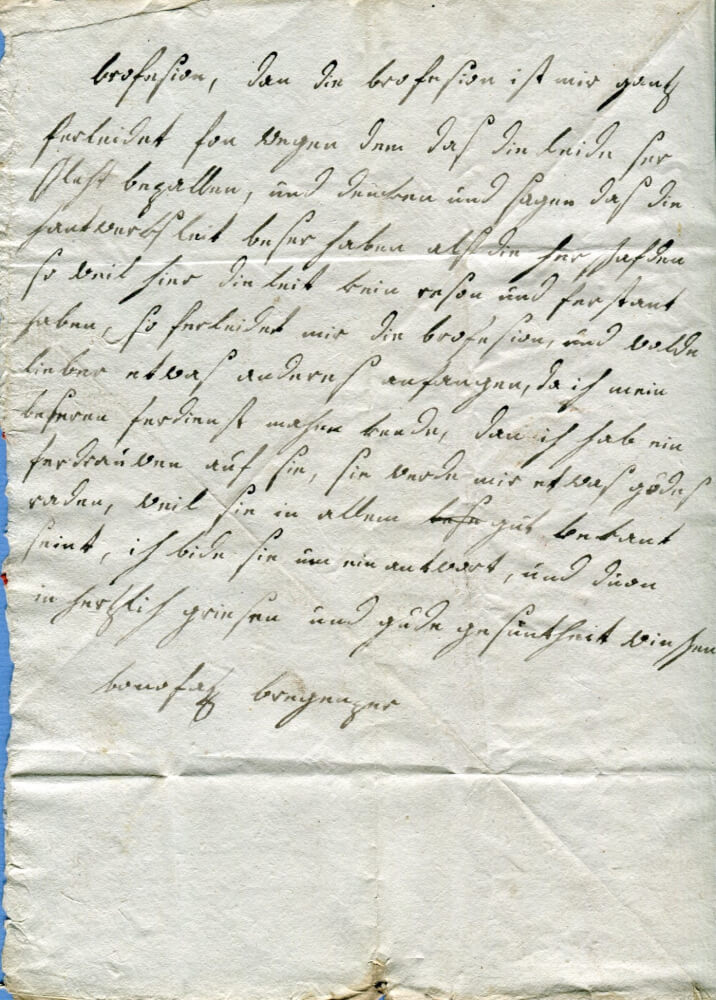 brofesion, dan die brofesion ist mir gantz
ferleidet fon wegen dem das die leide ser
schlecht bezallen, und dencken und sagen das die
hantwerks leit beser haben als die her schafden
so weil hier die leit kein reson und ferstant
haben, so ferleidet mir die brofesion, und wolde
lieber etwas anderes anfangen, da ich mein
beseren ferdienst machen kende, dan ich hab ein
ferdrauwen auf sie, sie werde mir etwas godes
raden, weil sie in allem gut bekant
seint, ich bide sie um ein antwort, und duon
in hertzlich griesen und gude gesuntheit winschen
bonofatz bregenzer